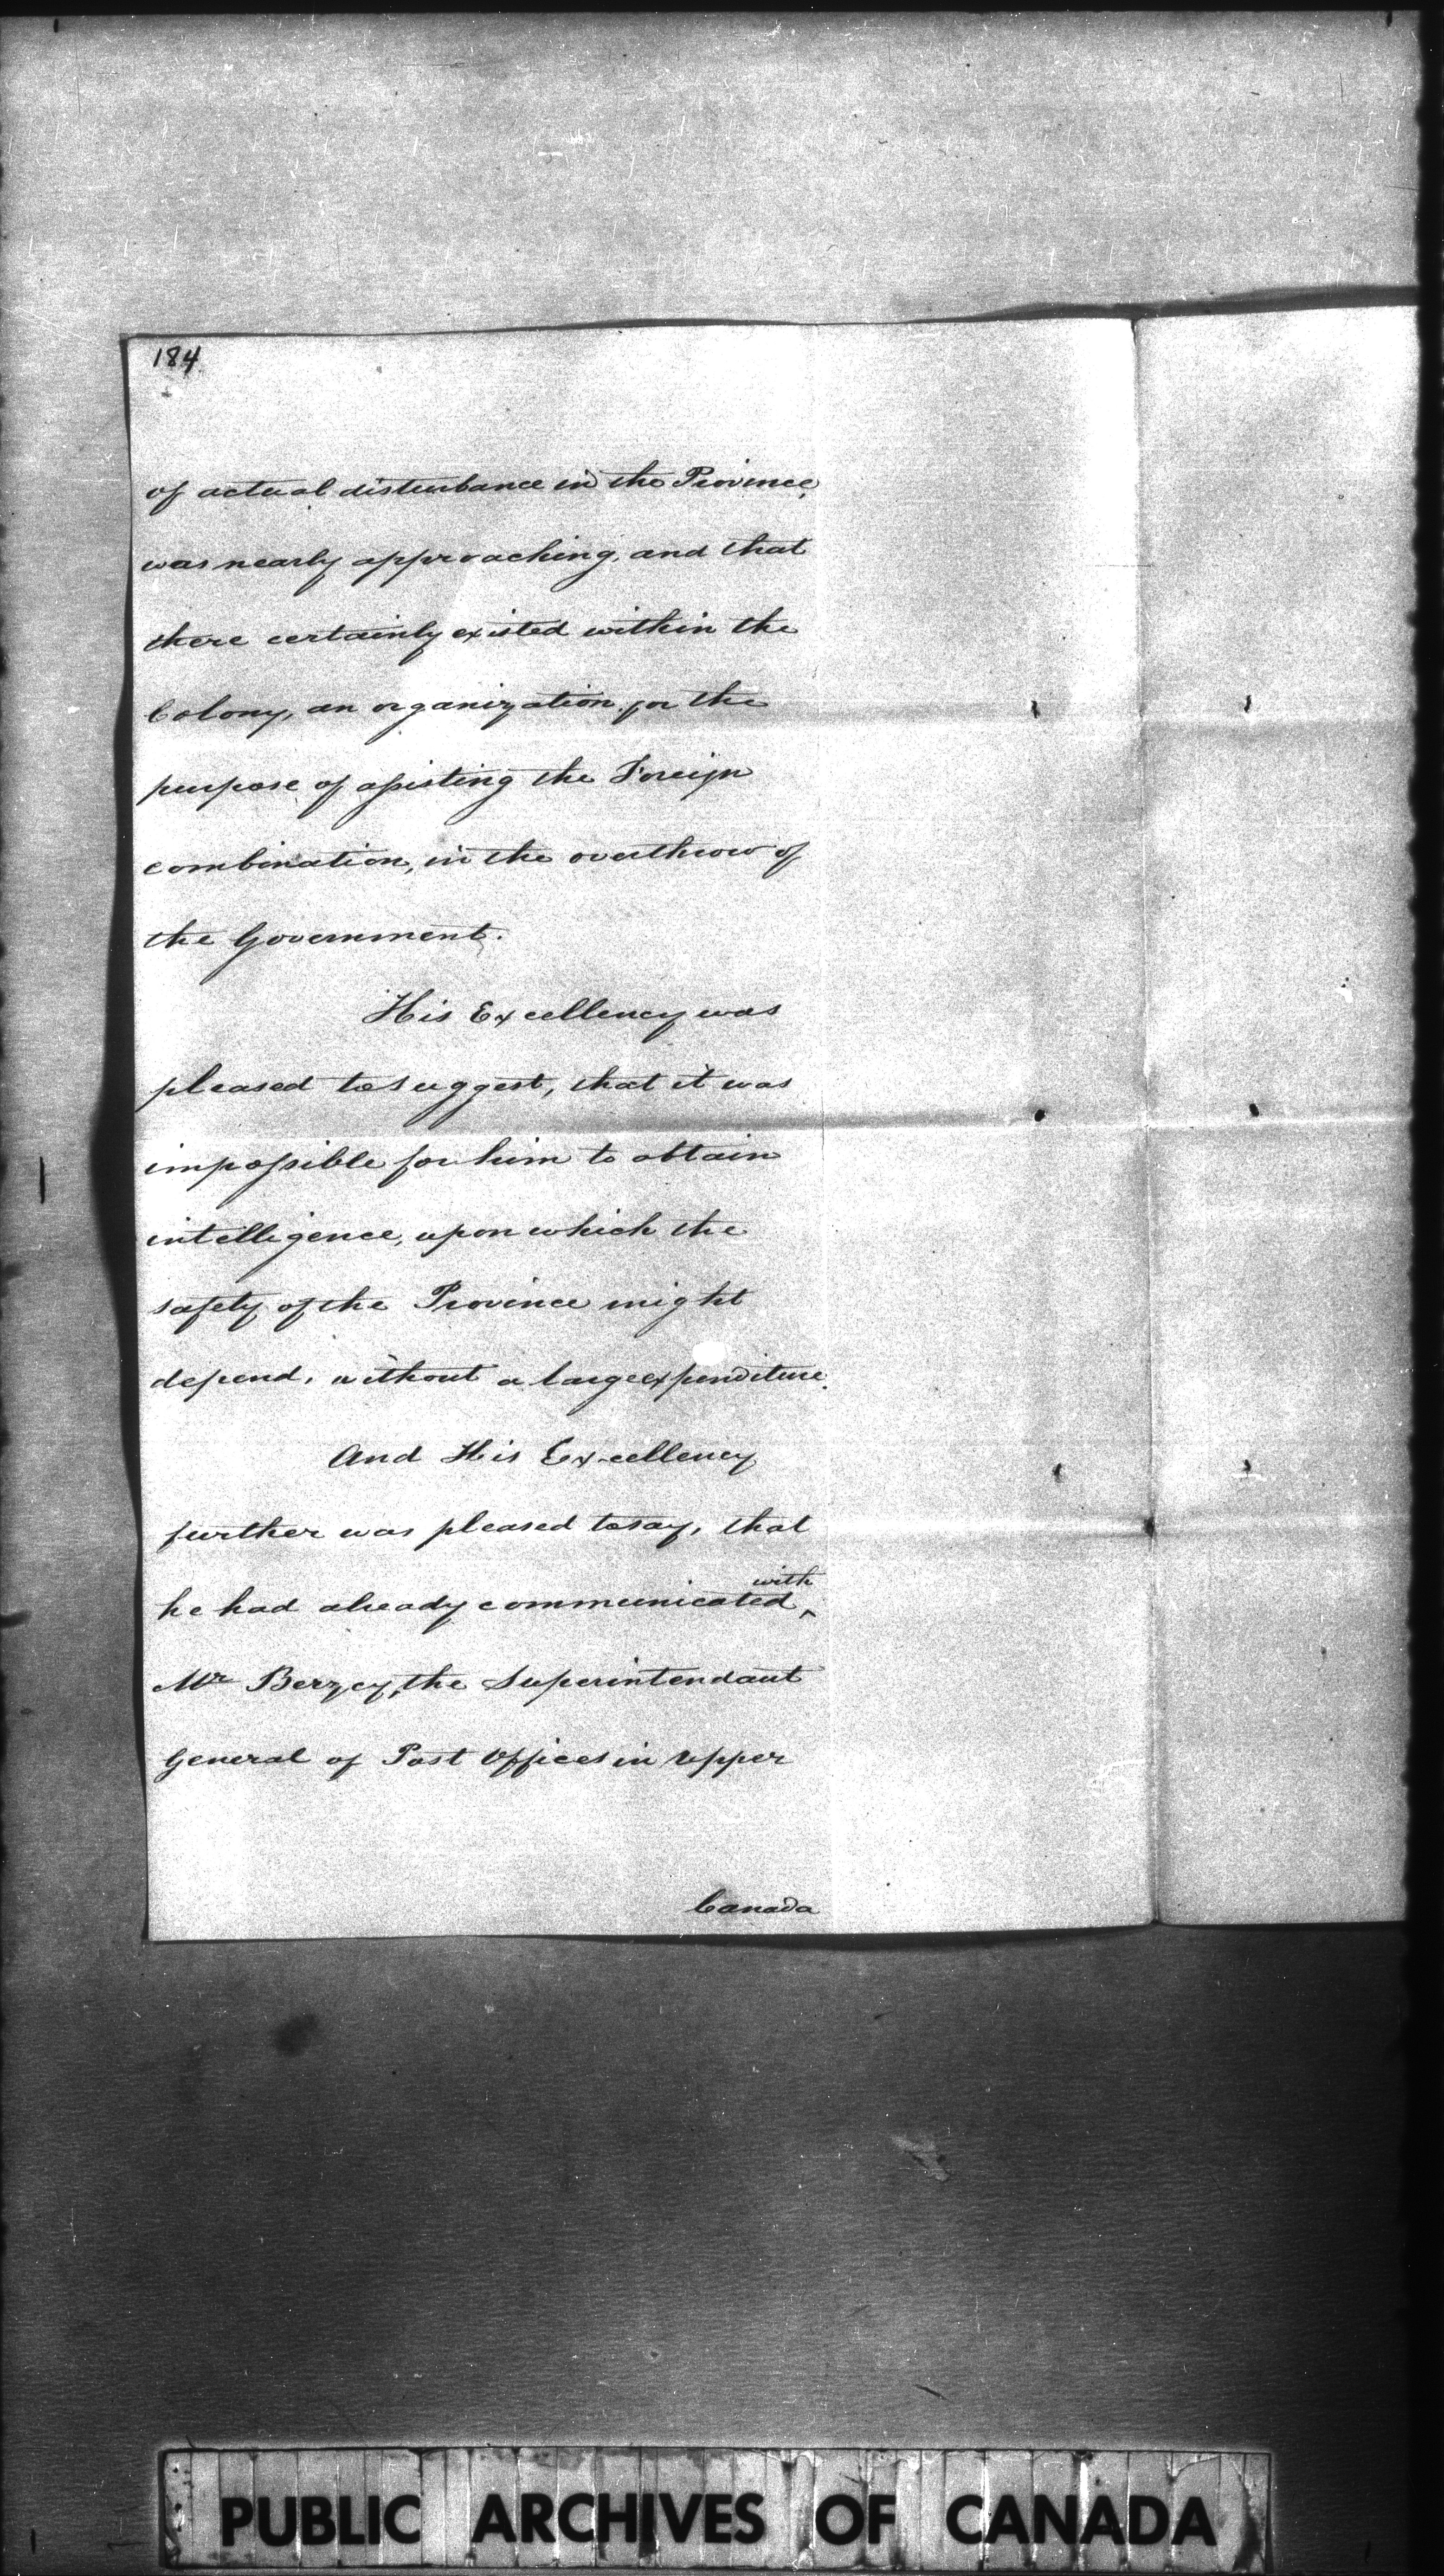 184
of actual disturbance in the Province,
was nearly approaching, and that
there certainly existed within the
Colony, an organization for the
purpose of assisting the Foreign
combination, in the overthrow of
the Government.
His Excellency was
pleased to suggest, that it was
impossible for him to obtain
intelligence, upon which the
safety of the Province might
depend, without a large expenditure.
And His Excellency
further was pleased to say, that
he had already communicated with
Mr Berzcy, the Superintendant
General of Post Offices in Upper
Canada
PUBLIC ARCHIVES OF CANADA